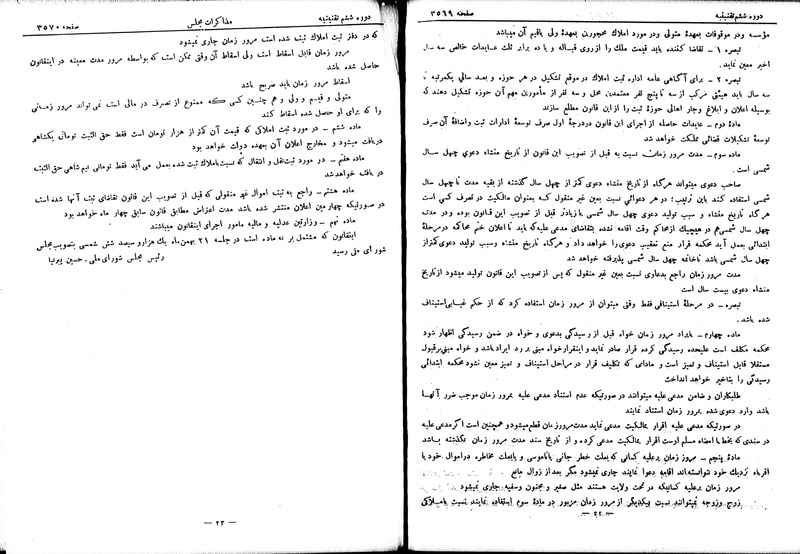 دوره ششم تقنینیه
صفحه ۳۵۶۹
مؤسسه ودر موقوفات بعهدهٔ متولی ودر مورد املاك محجورین بعهدهٔ ولی یاقیم آن میباشد
تبصره ۱ – تقاضا کننده باید قیمت ملك را از روی قباله و یا ده برابر ثلث عایدات خالص سه سال
اخیر معین نماید.
تبصره ۲ – برای آگاهی عامه اداره ثبت املاك در موقع تشکیل در هر حوزه و بعد سالی یکمرتبه تا
سه سال باید هیئتی مرکب از سه تا پنج نفر معتمدین محل و سه نفر از مأمورین مهم آن حوزه تشکیل دهند که
بوسیله اعلان و ابلاغ وجار اهالی حوزهٔ ثبت را از این قانون مطلع سازند
مادهٔ دوم – عایدات حاصله از اجرای این قانون در درجهٔ اول صرف توسعهٔ ادارات ثبت واضافهٔ آن صرف
توسعهٔ تشکیلات قضائی مملکت خواهد شد
ماده سوم – مدت مرور زمان نسبت به قبل از تصویب این قانون از تاریخ منشاء دعوی چهل سال
شمسی است .
صاحب دعوی میتواند هرگاه از تاریخ منشاء دعوی کمتر از چهل سال گذشته از بقیه مدت تا چهل سال
شمسی استفاده کند باین ترتیب : در هر دعوائی نسبت بعین غیر منقول که بعنوان مالکیت در تصرف کسی است
هر گاه تاریخ منشاء و سبب تولید دعوی چهل سال شمسی یا زیادتر قبل از تصویب این قانون بوده و در مدت
چهل سال شمسی هم در هیچیك از محاکم وقت اقامه نشده بتقاضای مدعی علیه که باید تا اعلان ختم محاکمه در مرحلهٔ
ابتدائی بعمل آید محکمه قرار منع تعقیب دعوی را خواهد داد و هرگاه تاریخ منشاء وسبب تولید دعوی کمتر از
چهل سال شمسی باشد تا خاتمه چهل سال شمسی پذیرفته خواهد شد
مدت مرور زمان راجع بدعاوی نسبت بعین غیر منقول که پس از تصویب این قانون تولید میشود از تاریخ
منشاء دعوی بیست سال است
تبصره – در مرحلهٔ استینافی فقط وقتی میتوان از مرور زمان استفاده کرد که از حکم غیابی استیناف
شده باشد .
ماده چهارم – بایراد مرور زمان خواه قبل از رسیدگی بدعوی و خواه در ضمن رسیدگی اظهار شود
محکمه مکلف است علیحده رسیدگی کرده قرار صادر نماید و اینقرار خواه مبنی بر رد ایراد باشد و خواه مبنی بر قبول
مستقلا قابل استیناف و تمیز است و مادامی که تکلیف قرار در مراحل استیناف و تمیز معین نشود محکمه ابتدائی
رسیدگی را بتأخیر خواهد انداخت
طلبکاران و ضامن مدعی علیه میتوانند در صورتیکه عدم استناد مدعی علیه بمرور زمان موجب ضرر آنها
باشد وارد دعوی شده بمرور زمان استناد نمایند
در صورتیکه مدعی علیه اقرار بمالکیت مدعی نماید مدت مرور زمان قطع میشود و همچنین است اگر مدعی علیه
در سندی که بخط یا امضاء مسلم اوست اقرار بمالکیت مدعی کرده و از تاریخ سند مدت مرور زمان نگذشته باشد
مادهٔ پنجم – مرور زمان بر علیه کسانی که بعلت خطر جانی یا ناموسی و یا بعلت مخاطره در اموال خود یا
اقرباء نزدیك خود نتوانسته اند اقامه دعوا نمایند جاری نمیشود مگر بعد از زوال مانع
مرور زمان بر علیه کسانیکه در تحت ولایت هستند مثل صغیر و مجنون وسفیه جاری نمیشود
زوج و زوجه نمیتوانند نسبت بیکدیگر از مرور زمان مزبور در مادهٔ سوم استفاده نمایند نسبت باملاکی
– ۲۲ –
دوره ششم تقنینیه
مذاکرات مجلس
صفحه ۳۵۷۰
که در دفتر ثبت املاك ثبت شده است مرور زمان جاری نمیشود
مرور زمان قابل اسقاط است ولی اسقاط آن وقتی ممکن است که بواسطه مرور مدت معینه در اینقانون
حاصل شده باشد
اسقاط مرور زمان باید صریح باشد
متولی و قیم و ولی و هم چنین کسی که ممنوع از تصرف در مالی است نمی تواند مرور زمانی
را که برای او حاصل شده اسقاط کند
ماده ششم – در مورد ثبت املاکی که قیمت آن کمتر از هزار تومان است فقط حق الثبت تومانی یکشاهی
دریافت میشود و مخارج اعلان آن بعهده دولت خواهد بود
ماده هفتم – در مورد ثبت نقل و انتقال که نسبت باملاك ثبت شده بعمل می آید فقط تومانی نیم شاهی حق الثبت
در یافت خواهد شد
ماده هشتم – راجع به ثبت اموال غیر منقولی که قبل از تصویب این قانون تقاضای ثبت آنها شده است
در صورتیکه چهارمین اعلان منتشر شده باشد مدت اعتراض مطابق قانون سابق چهار ماه خواهد بود
ماده نهم – وزارتین عدلیه و مالیه مامور اجرای اینقانون میباشند
اینقانون که مشتمل بر نه ماده است در جلسه ۲۱ بهمن ماه یك هزار و سیصد شش شمسی بتصویب مجلس
شورای ملی رسید
رئیس مجلس شورای ملی . حسین پیرنیا
– ۲۳ –